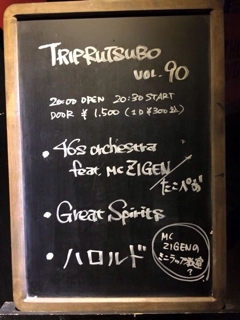 TRIPRUTSUBO
VOL. 90
20:00 OPEN 20:30 START
DOOR ¥1.500 (1D ¥300込)
・46s orchestra
feat. MC ZIGEN
たこべお
・Great Spirits
・ハロルド
MC
ZIGENの
ミニラップ教室
?